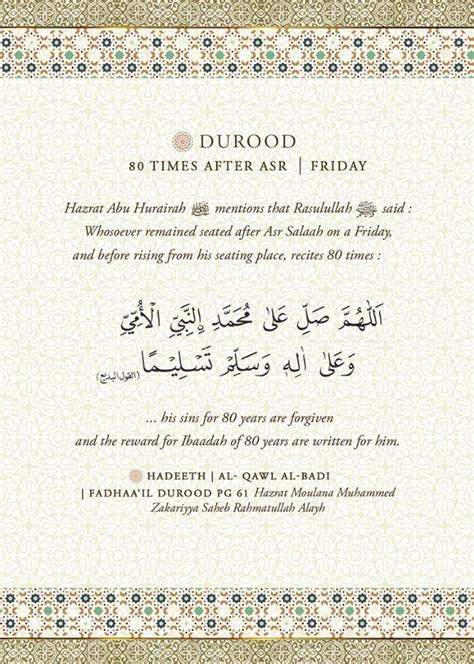 DUROOD
80 TIMES AFTER ASR | FRIDAY
Hazrat Abu Hurairah رضي الله عنه mentions that Rasulullah ﷺ said :
Whosoever remained seated after Asr Salaah on a Friday,
and before rising from his seating place, recites 80 times :
اَللّٰهُمَّ صَلِّ عَلٰى مُحَمَّدِ اِلنَّبِيِّ الْأُمِّيِّ
وَعَلٰى اٰلِهٖ وَسَلِّمْ تَسْلِيْمًا (القول البديع)
... his sins for 80 years are forgiven
and the reward for Ibaadah of 80 years are written for him.
HADEETH | AL- QAWL AL-BADI
| FADHAA'IL DUROOD PG 61 Hazrat Moulana Muhammed
Zakariyya Saheb Rahmatullah Alayh